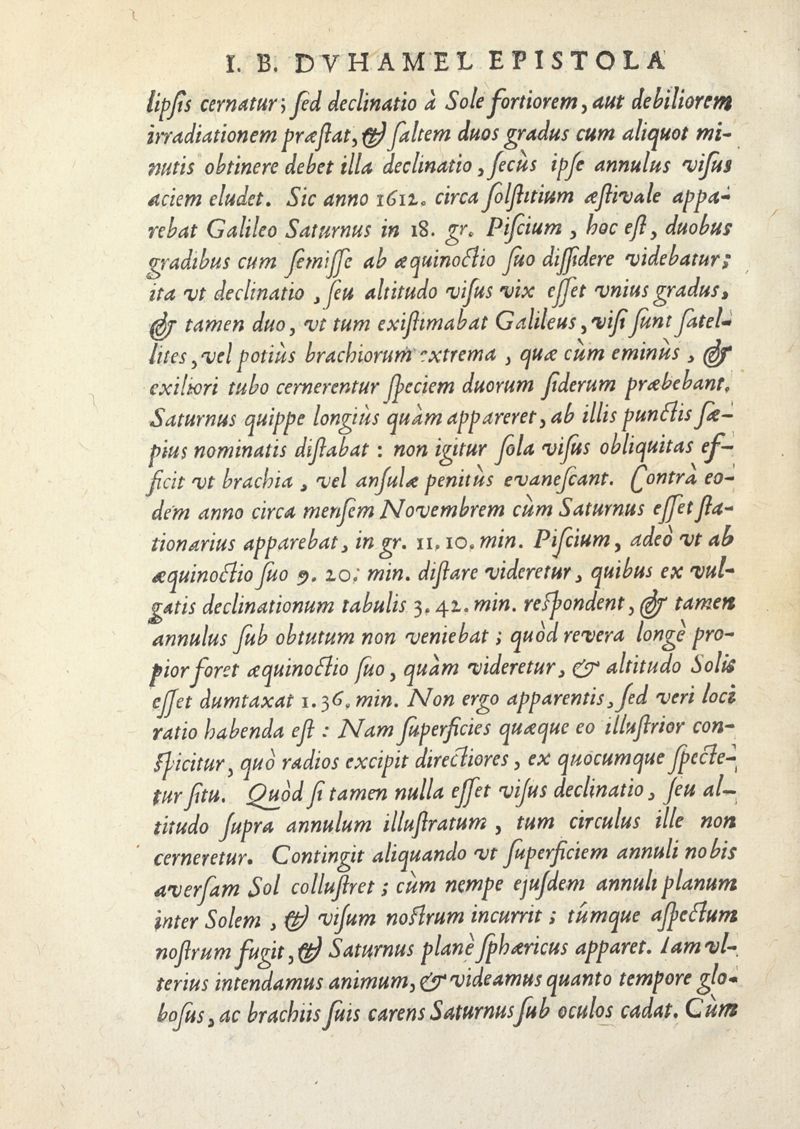 I. B. DVHAMEL EPISTOLA
lipſis cernatur; ſed declinatio à Sole fortiorem, aut debiliorem
irradiationem præſtat, & ſaltem duos gradus cum aliquot mi-
nutis obtinere debet illa declinatio, ſecùs ipſe annulus viſus
aciem eludet. Sic anno 1612. circa ſolſtitium æſtivale appa-
rebat Galileo Saturnus in 18. gr. Piſcium, hoc eſt, duobus
gradibus cum ſemiſſe ab æquinoctio ſuo diſſidere videbatur;
ita vt declinatio, ſeu altitudo viſus vix eſſet vnius gradus,
& tamen duo, vt tum exiſtimabat Galileus, viſi ſunt ſatel-
lites, vel potiùs brachiorum extrema, quæ cùm eminùs, &
exiliori tubo cernerentur ſpeciem duorum ſiderum præbebant.
Saturnus quippe longiùs quàm appareret, ab illis punctis ſæ-
pius nominatis diſtabat : non igitur ſola viſus obliquitas ef-
ficit vt brachia, vel anſulæ penitùs evaneſcant. Contrà eo-
dem anno circa menſem Novembrem cùm Saturnus eſſet ſta-
tionarius apparebat, in gr. 11. 10. min. Piſcium, adeò vt ab
æquinoctio ſuo 9. 20. min. diſtare videretur, quibus ex vul-
gatis declinationum tabulis 3. 42. min. reſpondent, & tamen
annulus ſub obtutum non veniebat ; quòd revera longè pro-
pior foret æquinoctio ſuo, quàm videretur, & altitudo Solis
eſſet dumtaxat 1. 36. min. Non ergo apparentis, ſed veri loci
ratio habenda eſt : Nam ſuperficies quæque eo illuſtrior con-
ſpicitur, quò radios excipit directiores, ex quocumque ſpecte-
tur ſitu. Quòd ſi tamen nulla eſſet viſus declinatio, ſeu al-
titudo ſupra annulum illuſtratum, tum circulus ille non
cerneretur. Contingit aliquando vt ſuperficiem annuli nobis
averſam Sol colluſtret ; cùm nempe ejuſdem annuli planum
inter Solem, & viſum noſtrum incurrit ; túmque aſpectum
noſtrum fugit, & Saturnus planè ſphæricus apparet. Iam vl-
terius intendamus animum, & videamus quanto tempore glo-
boſus, ac brachiis ſuis carens Saturnus ſub oculos cadat. Cùm